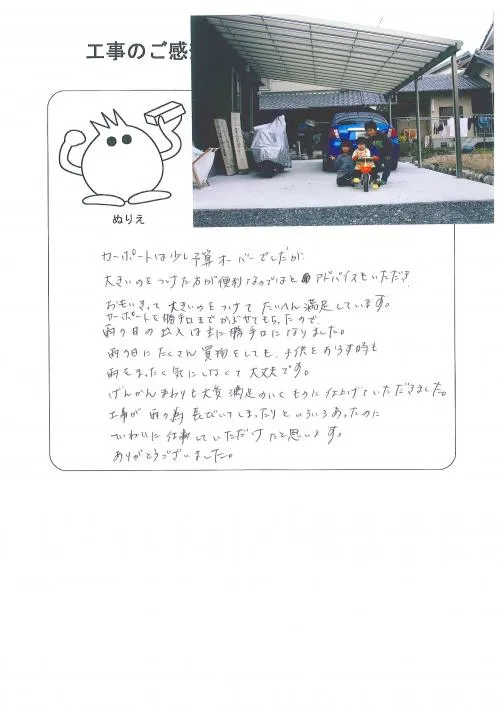 工事のご感
ぬりえ
カーポートは少し予算オーバーでしたが
大きいのをつけた方が便利なのではとアドバイスもいただき、
おもいきって大きいのをつけてたいへん満足しています。
カーポートを勝手口までかぶせてもらったので、
雨の日の出入は主に勝手口になりました。
雨の日にたくさん買物をしても、子供をおろす時も
雨をまったく気にしなくて大丈夫です。
げんかんまわりも大変満足のいくものに仕上げていただきました。
工事が雨の為長びいてしまったりといろいろあったのに
ていねいに仕事していただけたと思います。
ありがとうございました。